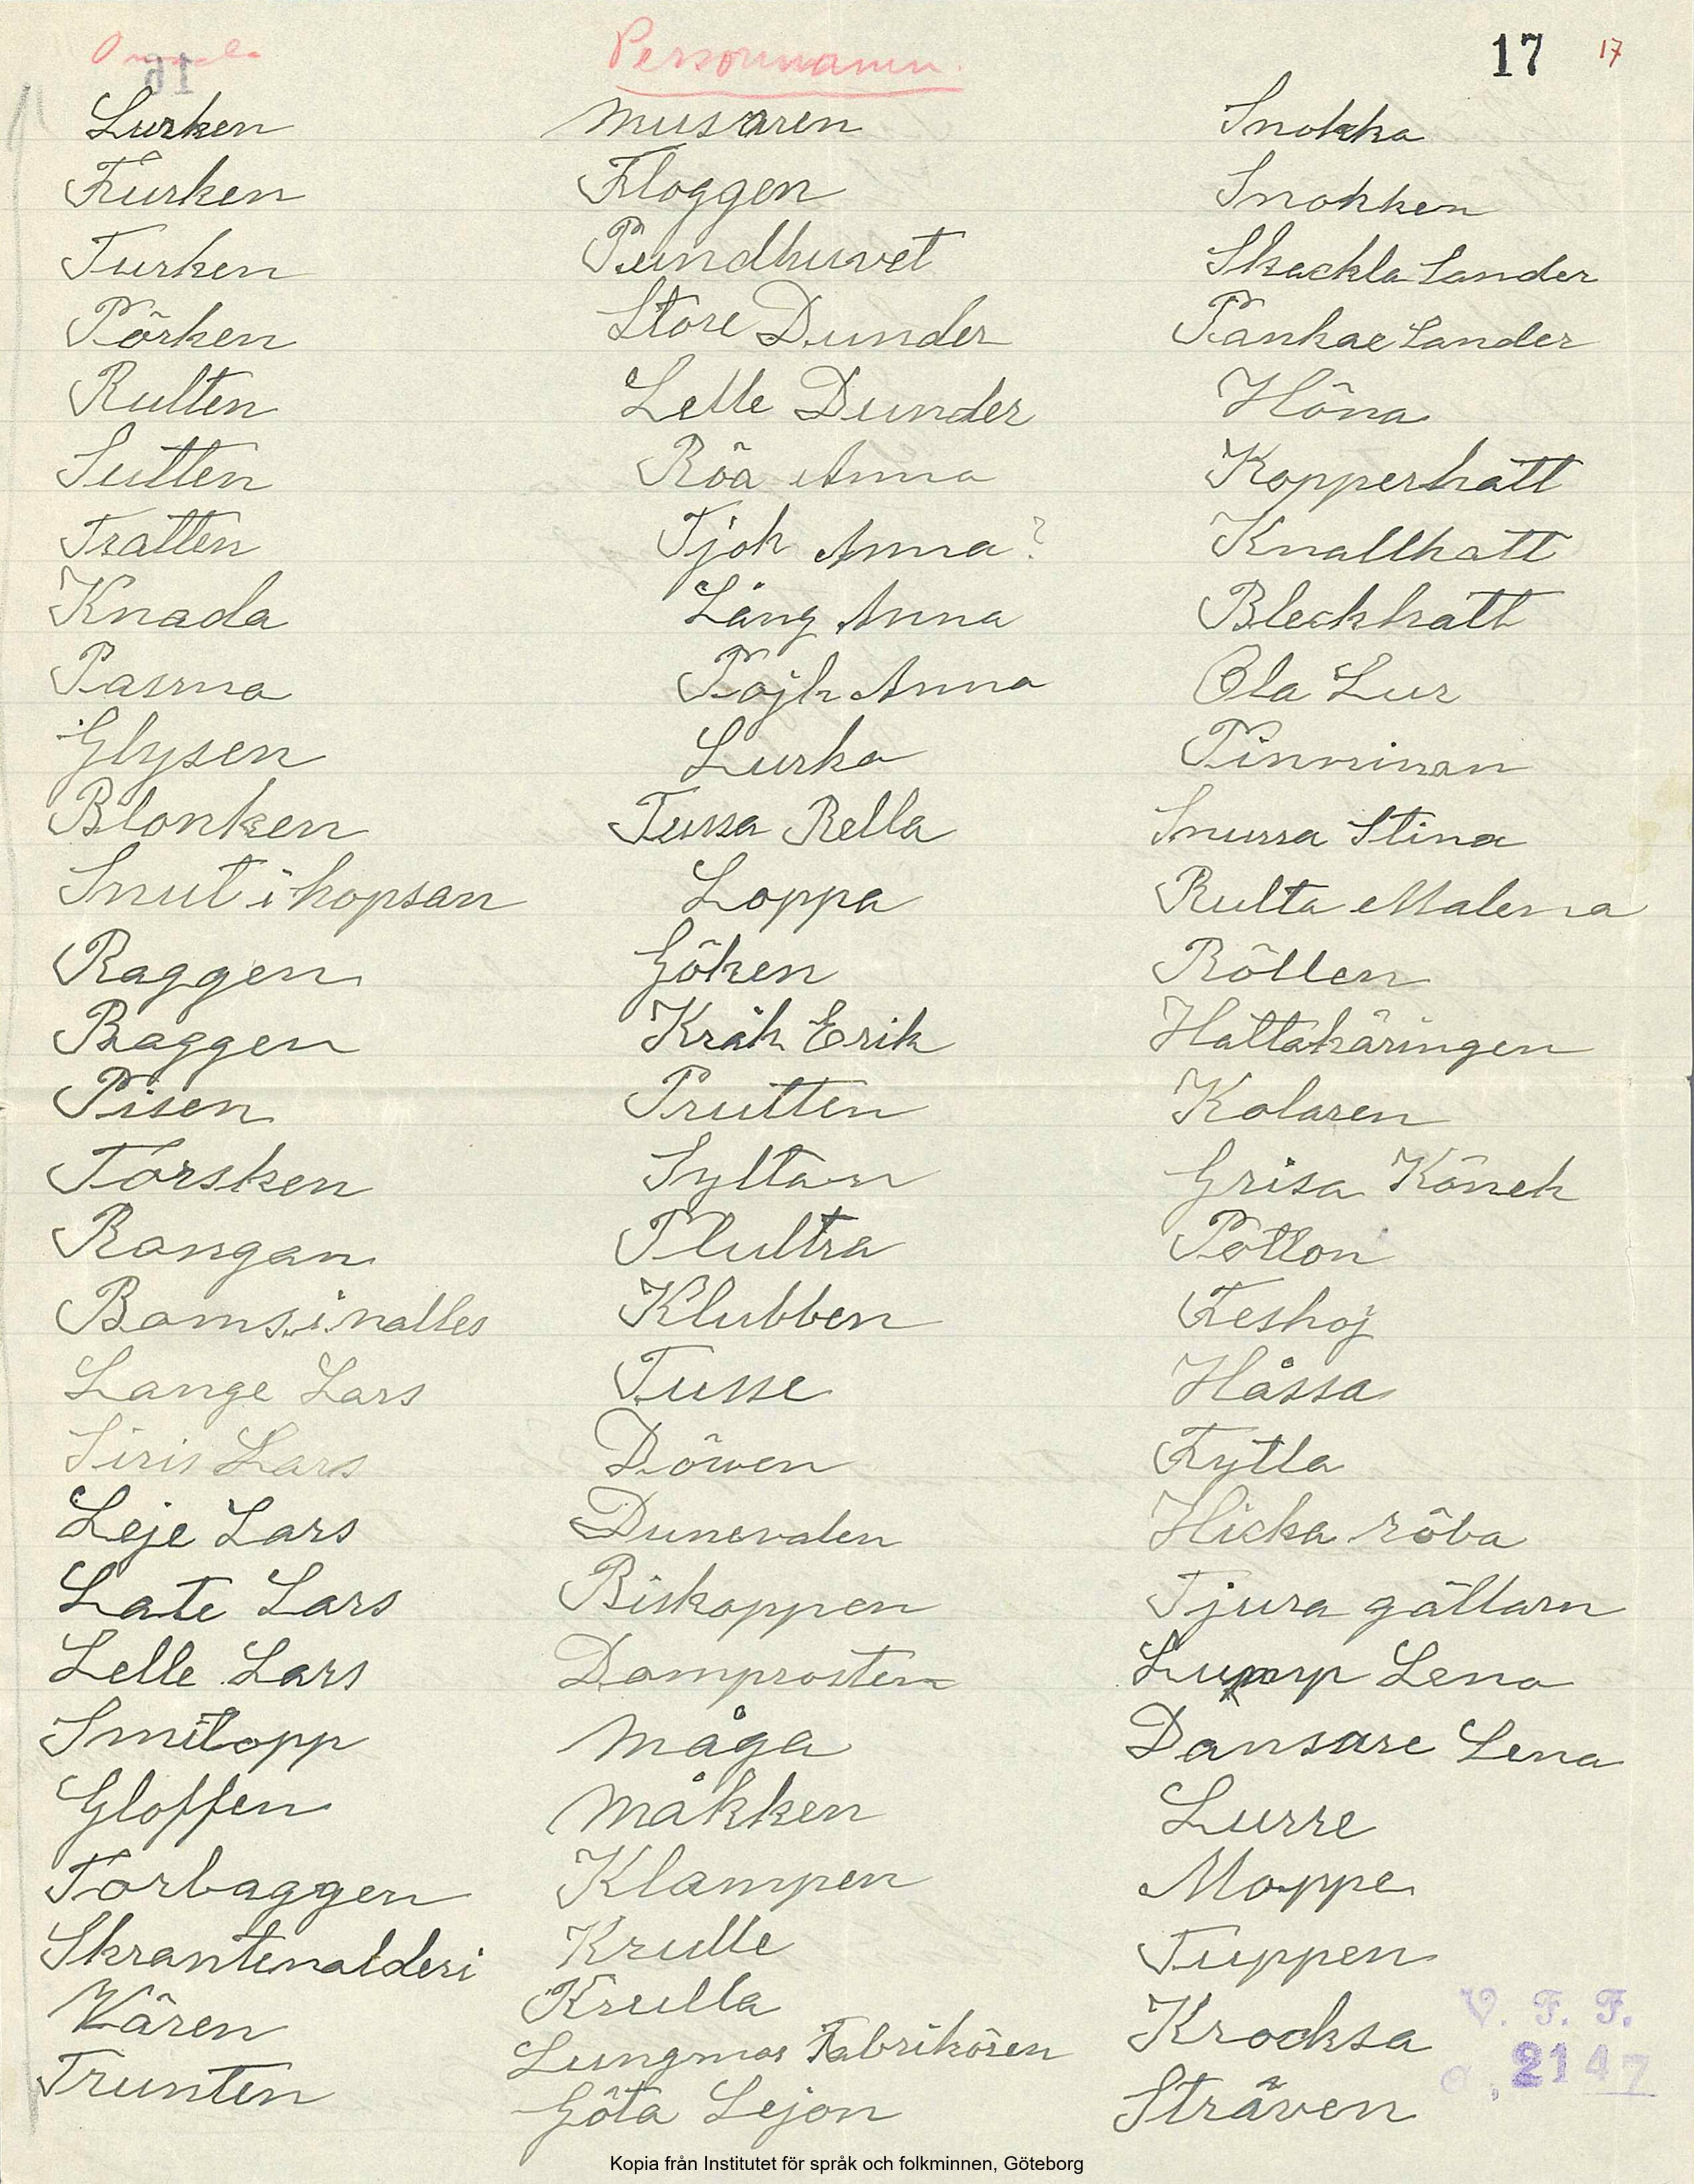 Personnamn.
17 17
16
Lurken
Furken
Turken
Pörken
Rulten
Sutten
Tratten
Knada
Pasma
Glysen
Blonken
Snut i hopsan
Raggen
Baggen
Pisen
Torsken
Rangan
Boms i nalles
Lange Lars
Siris Lars
Leje Lars
Late Lars
Lelle Lars
Smitopp
Gloffen
Torbaggen
Skrantenalderi
Kären
Trunten
Musaren
Floggen
Pundhuvet
Store Dunder
Lelle Dunder
Röa Anna
Tjok Anna?
Lång Anna
Pojk Anna
Lurka
Tussa Rella
Loppa
Göken
Kråk Erik
Prutten
Syltan
Plultra
Klubben
Tusse
Döwen
Dunevalen
Biskoppen
Domprosten
Måga
Måkken
Klampen
Krulle
Krulla
Lungmos Fabrikören
Göta Lejon
Snokka
Snokken
Skackla Sander
Pankae Sander
Höna
Kopperhatt
Knallhatt
Bleckhatt
Ola Lur
Pinninan
Snurra Stina
Rulta Malena
Röllen
Hattakäringen
Kolaren
Grisa Könek
Potton
Feshoj
Håssa
Fytla
Hicka röva
Tjura gällarn
Lump Lena
Dansare Lena
Lurre
Moppe
Tuppen
Krocksa
Sträven
V. F. F.
2147
Kopia från Institutet för språk och folkminnen, Göteborg